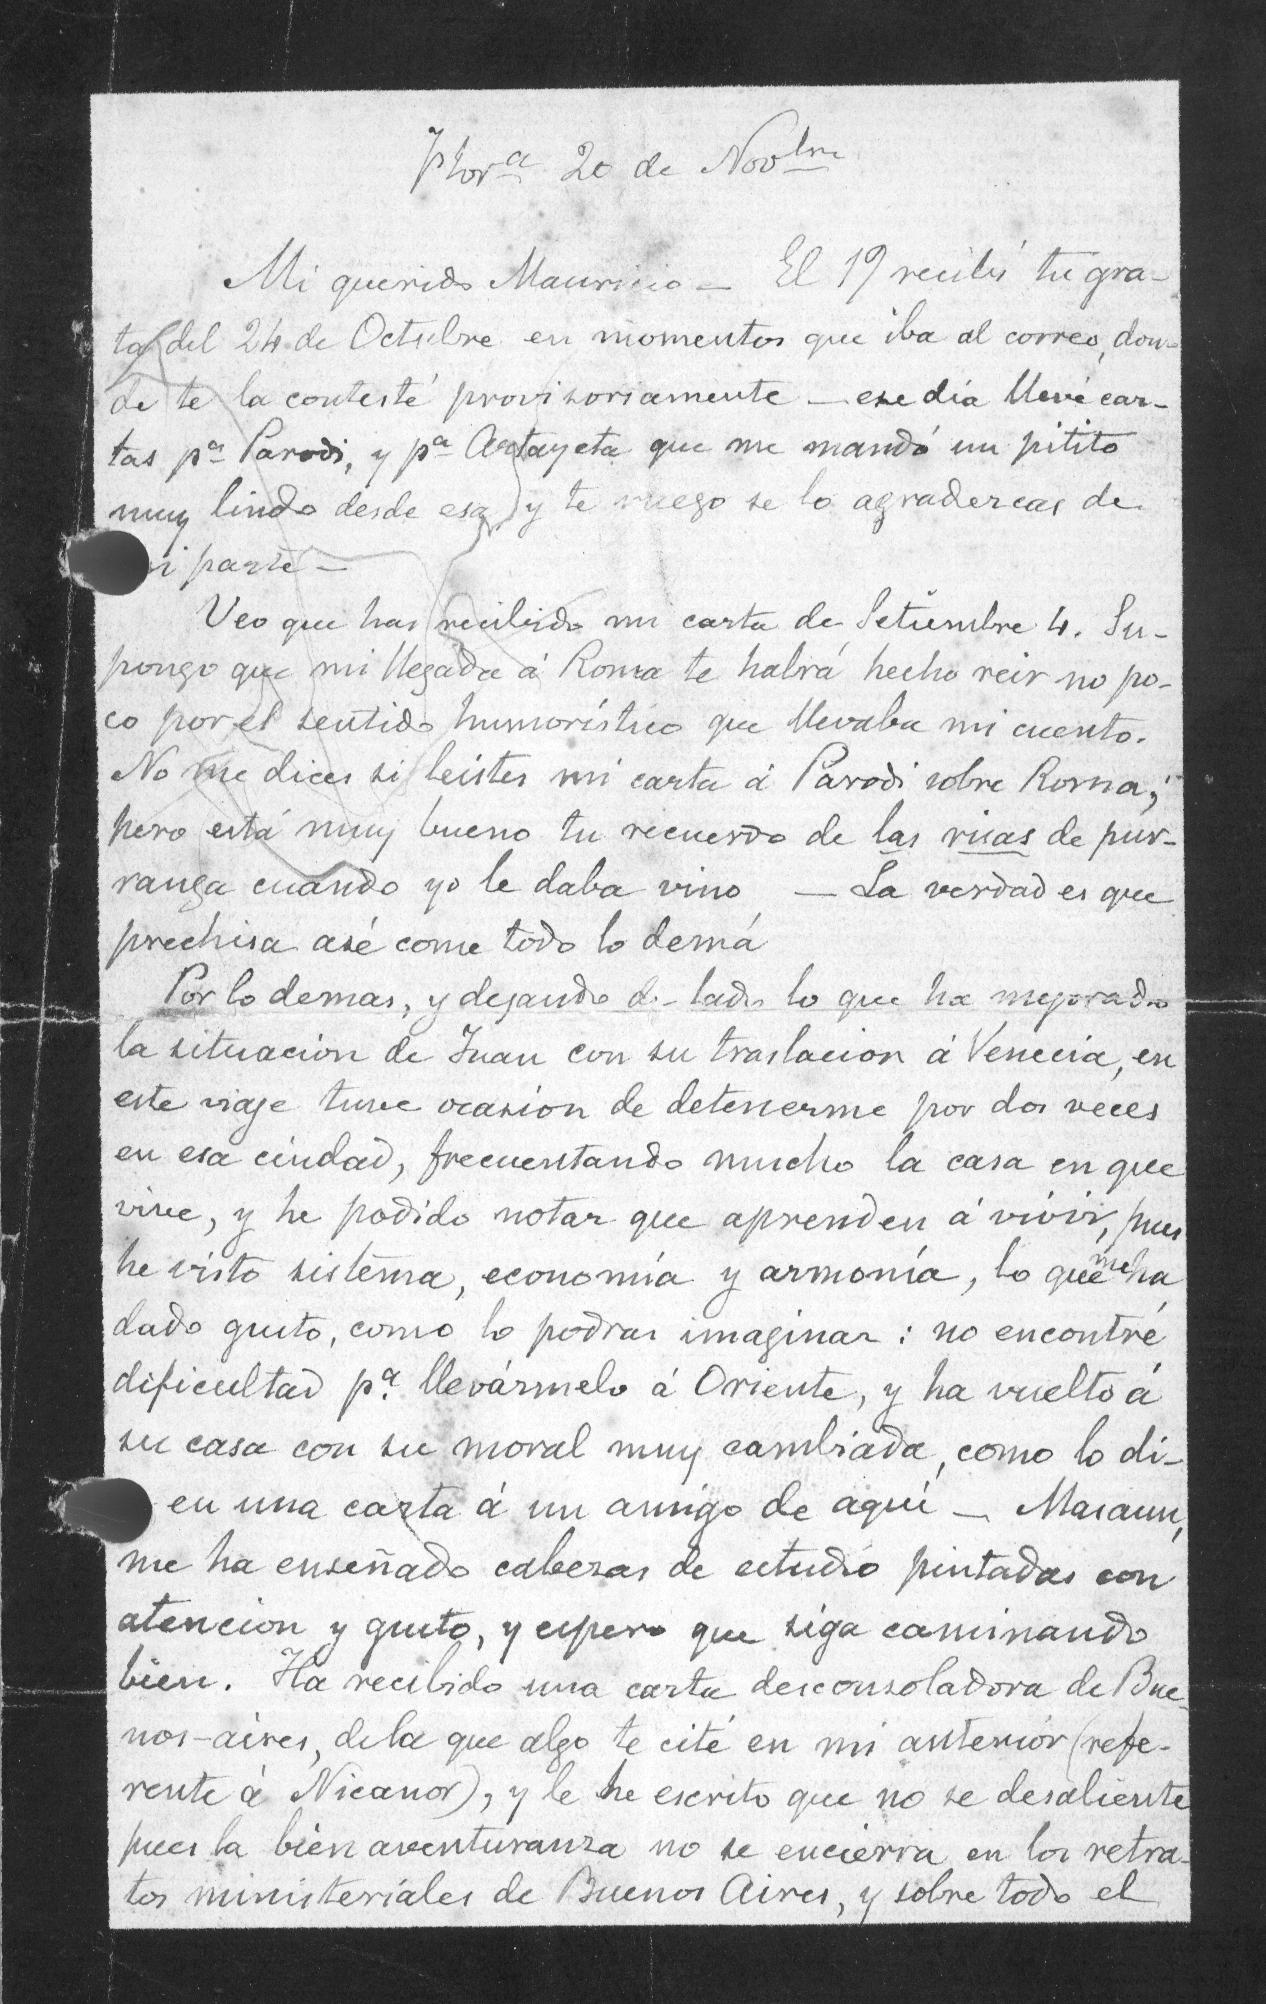 Flora 20 de Novbre
Mi querido Mauricio — El 19 recibí tu gra-
ta del 24 de Octubre en momentos que iba al correo, don-
de te la contesté provisoriamente — ese día llevé car-
tas pa Parodi, y pa Artayeta que me mandó un pitito
muy lindo desde esa, y te ruego se lo agradezcas de
mi parte —
Veo que has recibido mi carta de Setiembre 4. Su-
pongo que mi llegada á Roma te habrá hecho reir no po-
co por el sentido humorístico que llevaba mi cuento.
No me dices si leistes mi carta á Parodi sobre Roma;
pero está muy bueno tu recuerdo de las risas de pur-
ranga cuando yo le daba vino — La verdad es que
prechisa asé come todo lo demá
Por lo demas, y dejando de lado lo que ha mejorado
la situacion de Juan con su traslacion á Venecia, en
este viaje tuve ocasion de detenerme por dos veces
en esa ciudad, frecuentando mucho la casa en que
vive, y he podido notar que aprenden á vivir, pues
he visto sistema, economía y armonía, lo que me ha
dado gusto, como lo podras imaginar: no encontré
dificultad pa. llevármelo á Oriente, y ha vuelto á
su casa con su moral muy cambiada, como lo di-
en una carta á un amigo de aquí —
me ha enseñado cabezas de estudio pintadas con
atencion y gusto, y espero que siga caminando
bien. Ha recibido una carta desconsoladora de Bue-
nos-aires, de la que algo te cité en mi anterior (refe-
rente á Nicanor), y le he escrito que no se desaliente
pues la bienaventuranza no se encierra en los retra-
tos ministeriales de Buenos Aires, y sobre todo el